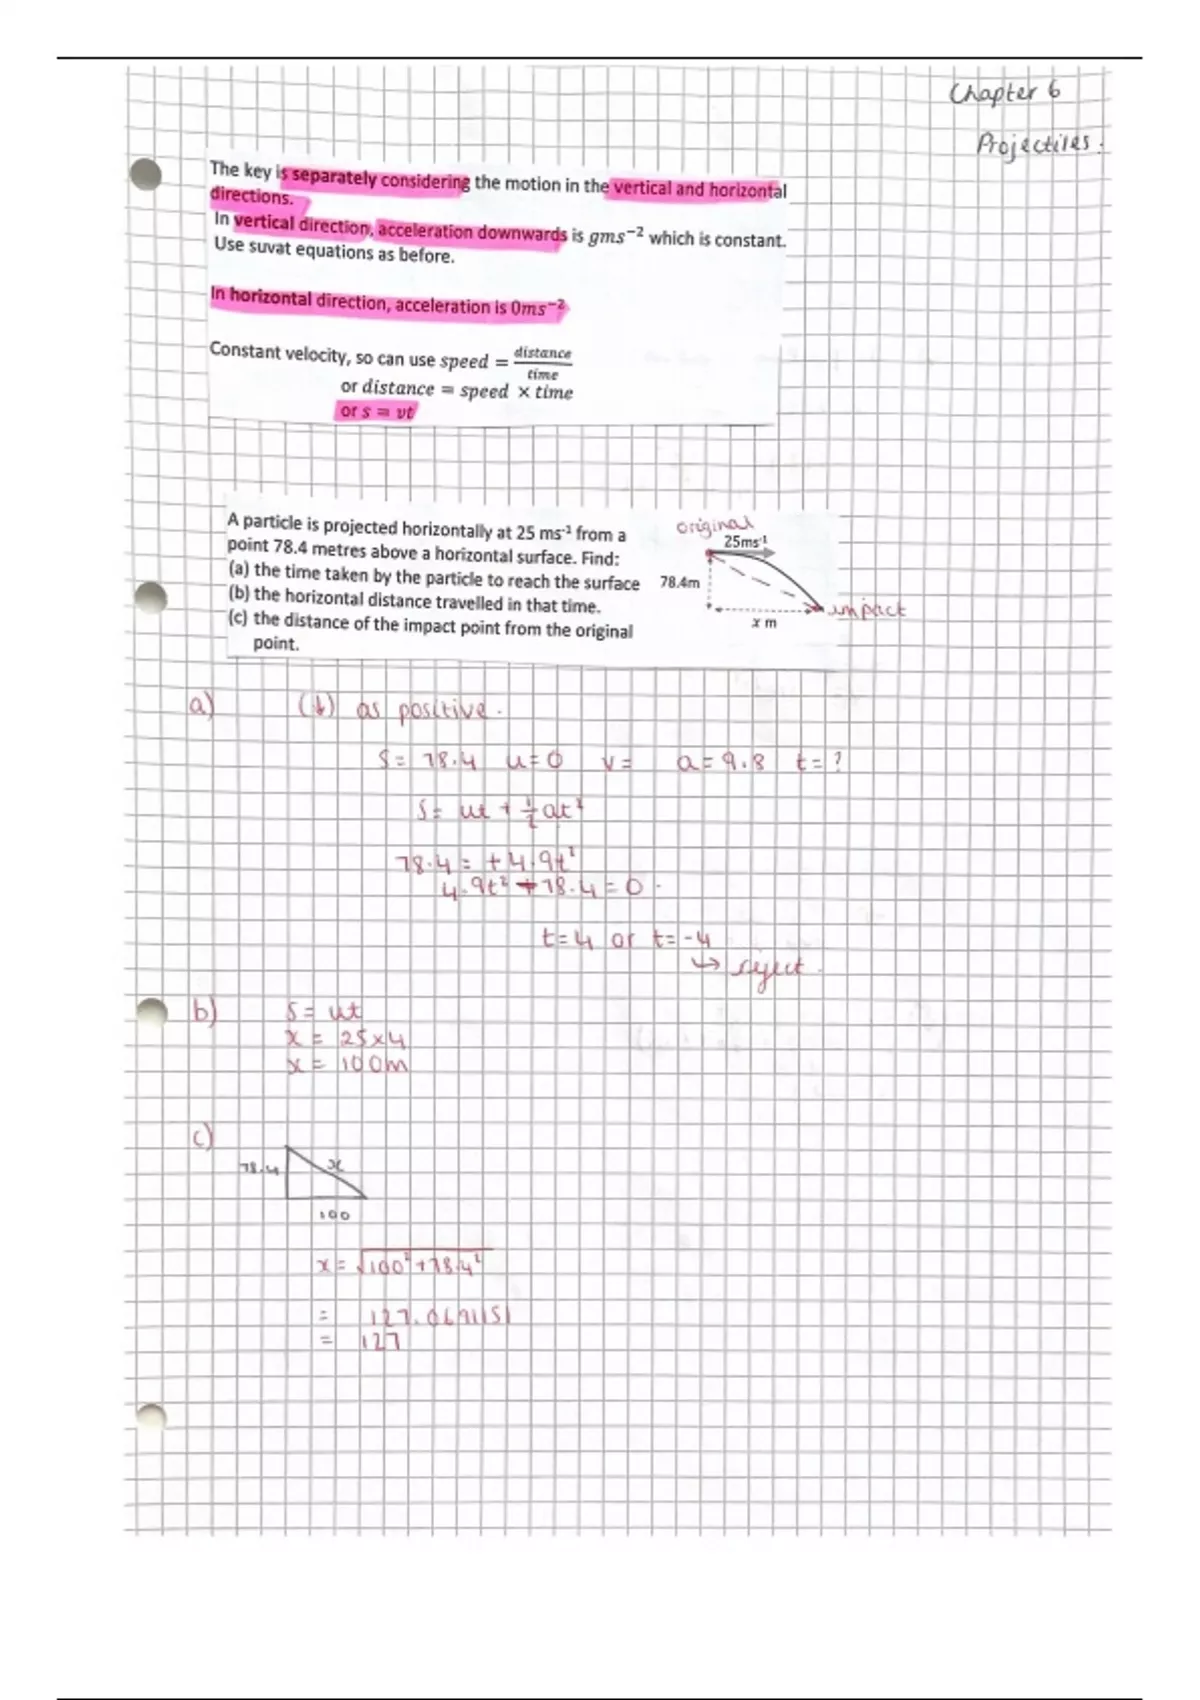 Chapter 6
Projectiles.
The key is separately considering the motion in the vertical and horizontal
directions.
In vertical direction, acceleration downwards is gms⁻² which is constant.
Use suvat equations as before.
In horizontal direction, acceleration is 0ms⁻²
Constant velocity, so can use speed = distance/time
or distance = speed × time
or s = vt
A particle is projected horizontally at 25 ms⁻¹ from a
point 78.4 metres above a horizontal surface. Find:
(a) the time taken by the particle to reach the surface
(b) the horizontal distance travelled in that time.
(c) the distance of the impact point from the original
point.
original
25ms⁻¹
78.4m
impact
x m
a) (↓) as positive.
s= 78.4 u=0 v= a=9.8 t=?
s= ut + ½at²
78.4= +4.9t²
4.9t² 78.4=0.
t=4 or t=-4
↪ reject.
b) s= ut
x = 25×4
x = 100m
c)
78.4 x
100
x = √100²+78.4²
= 127.0691151
= 127